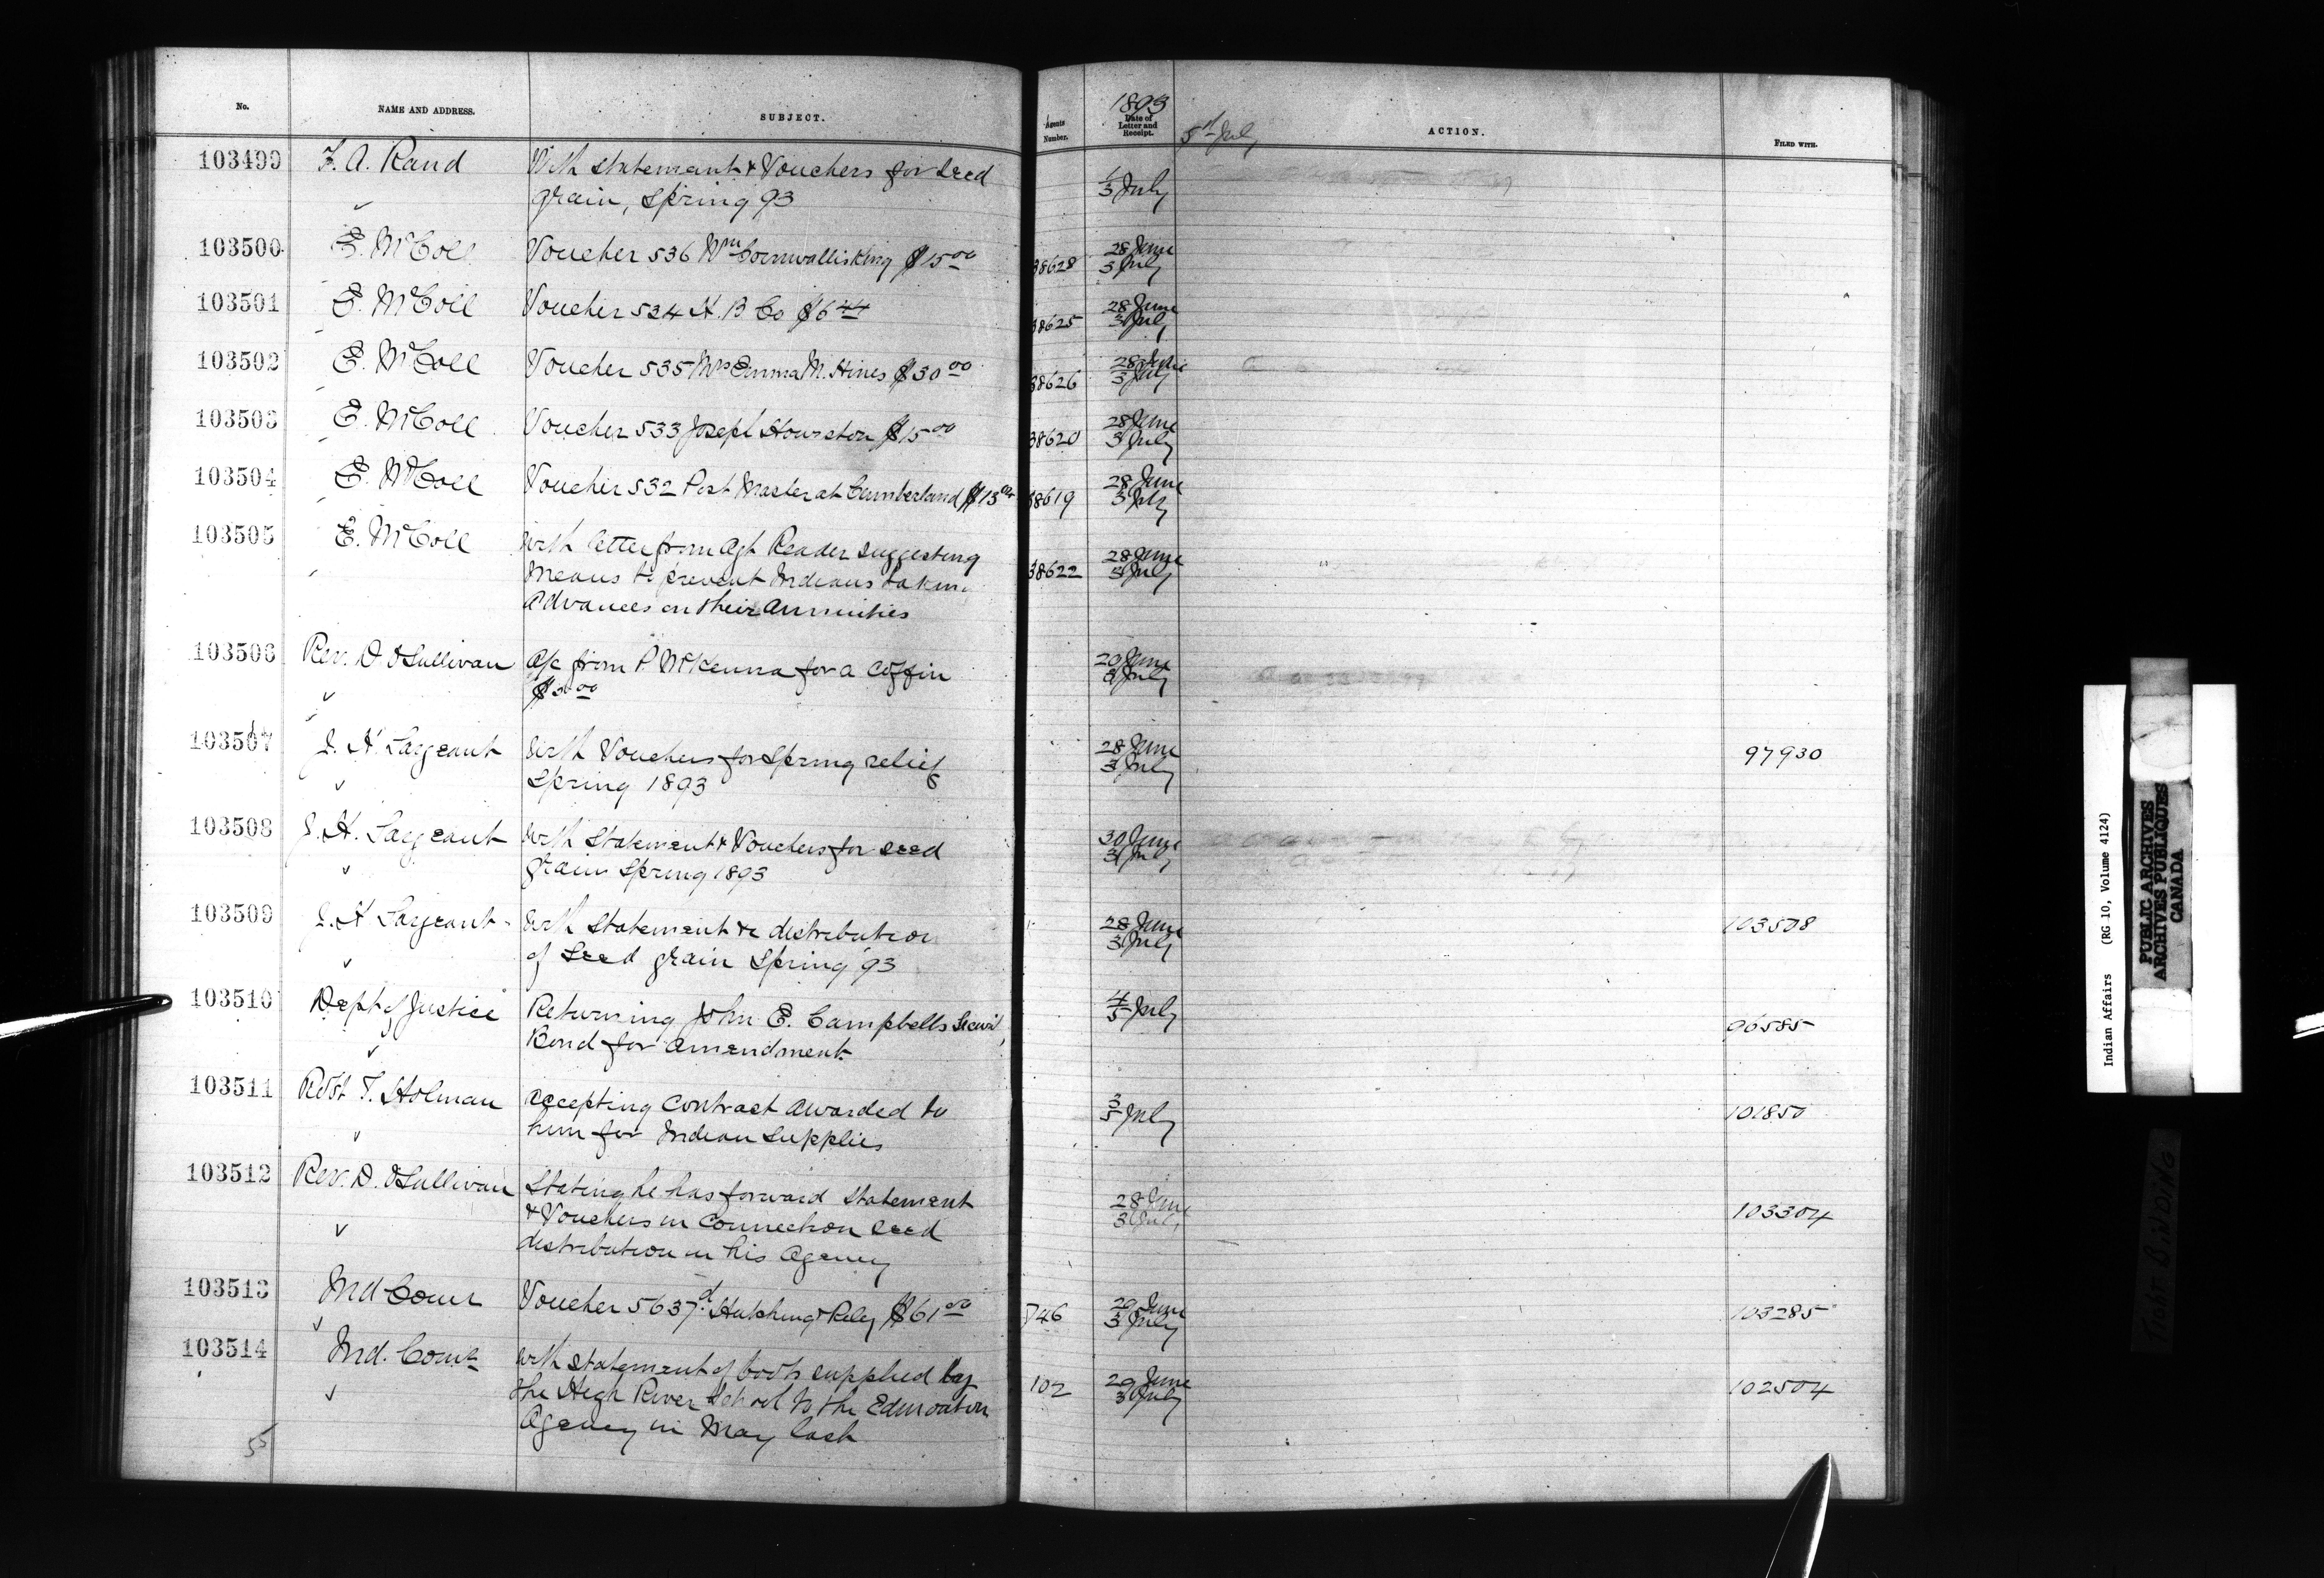 No. NAME AND ADDRESS. SUBJECT. Agents Number. 1893 Date of Letter and Receipt. 5th July ACTION. FILED WITH.
103499 F. A. Rand With Statement & Vouchers for Seed 1/3 July
grain, Spring 93
103500 E. McColl Voucher 536 Wm Cornwallis King $15 00 38628 28 June 3 July
103501 E. McColl Voucher 534 H. B Co $6 44 38625 28 June 3 July
103502 E. McColl Voucher 535 Mrs Emma M. Hines $30 00 38626 28 June 3 July
103503 E. McColl Voucher 533 Joseph Hourston $15 00 38620 28 June 3 July
103504 E. McColl Voucher 532 Post Master at Cumberland $13 38619 28 June 3 July
103505 E. McColl With letter from Agt Reader suggesting 38622 28 June 3 July
means to prevent Indians taking
advances on their annuities
103506 Rev. D. O'Sullivan A/c from P McKenna for a coffin 20 June 3 July
$ 00
103507 J. H. Sargeant With Vouchers for Spring relief 28 June 3 July 97930
Spring 1893
103508 J. H. Sargeant With Statement & Vouchers for seed 30 June 3 July
grain Spring 1893
103509 J. H Sargeant With Statement re distribution 28 June 3 July 103508
of Seed grain Spring '93
103510 Dept of Justice Returning John E. Campbells 4/5 July 96585
Bond for amendment
103511 Robt T. Holman accepting contract awarded to 3/5 July 101850
him for Indian supplies
103512 Rev. D. O'Sullivan Stating he has forward statement 28 June 3 July 103304
& Vouchers in connection seed
distribution in his Agency
103513 Ind Comr Voucher 5637 Hutchings & Riley $61 00 746 29 June 3 July 103285
103514 Ind. Comr With statement of boots supplied by 102 29 June 3 July 102504
the High River School to the Edmonton
Agency in May last
55
Indian Affairs (RG 10, Volume 4124)
PUBLIC ARCHIVES
ARCHIVES PUBLIQUES
CANADA
TIGHT BINDING